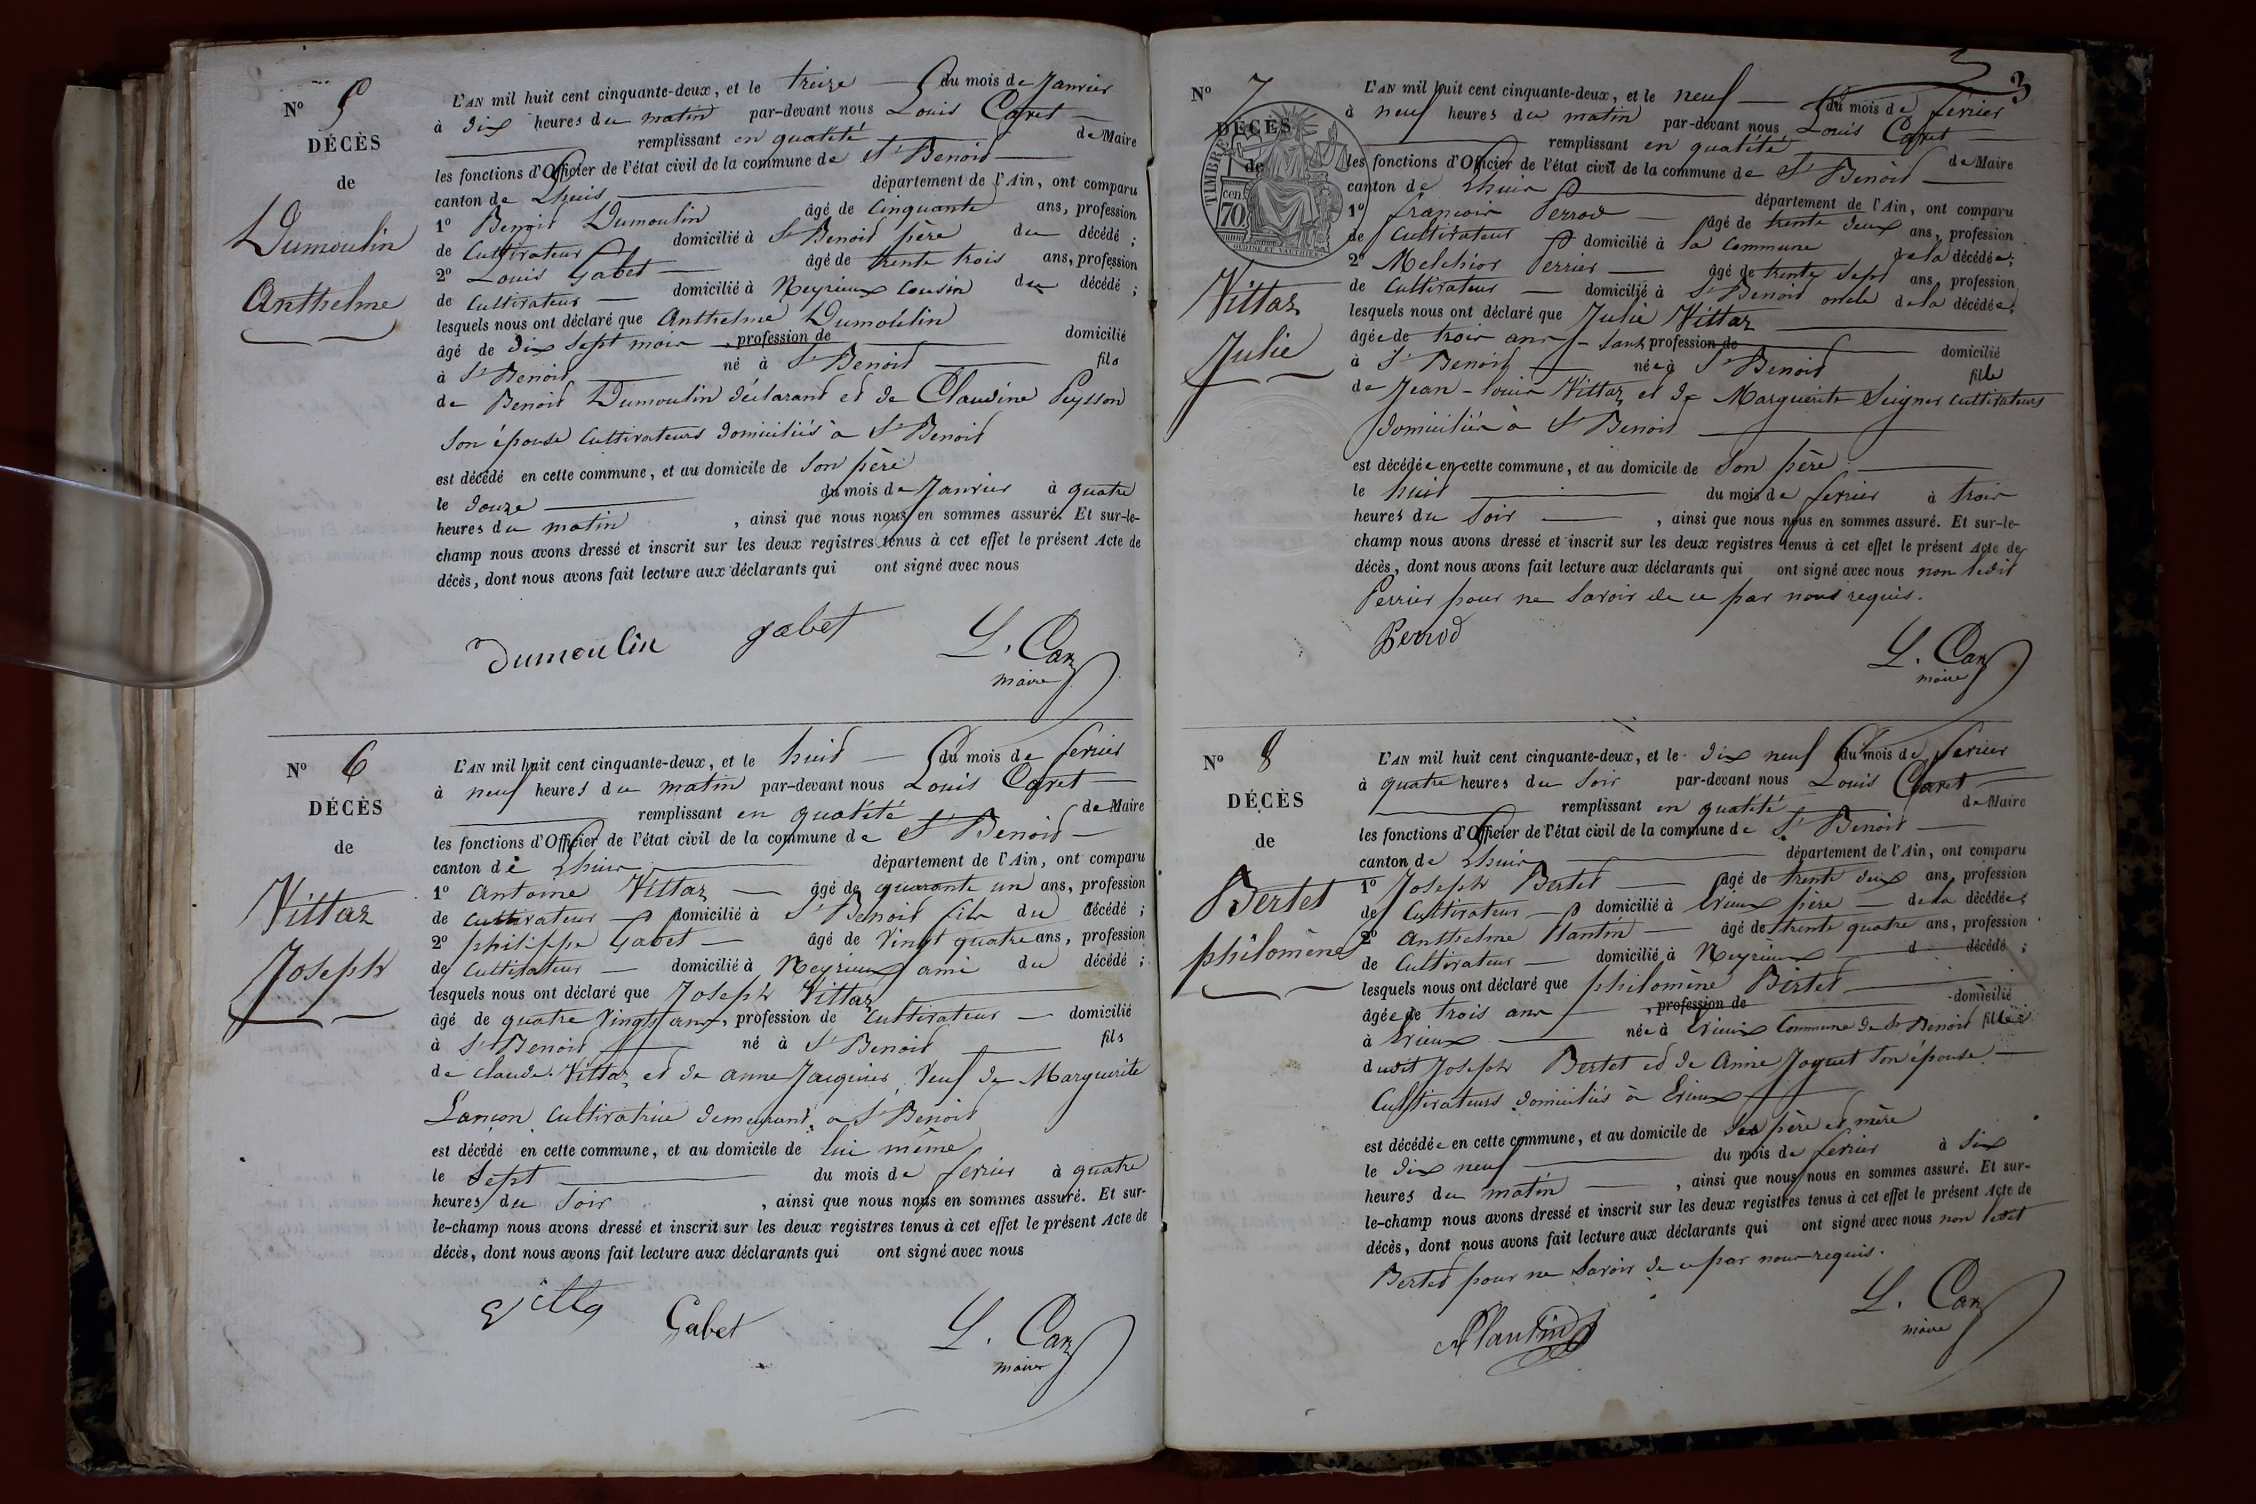 N° 5
DÉCÈS
de
Dumoulin
Anthelme
L'AN mil huit cent cinquante-deux, et le treize du mois de Janvier
à dix heures du matin par-devant nous Louis Caret
remplissant en qualité de Maire
les fonctions d'Officier de l'état civil de la commune de St Benoit
canton de Lhuis département de l'Ain, ont comparu
1° Benoit Dumoulin âgé de Cinquante ans, profession
de Cultivateur domicilié à St Benoit père du décédé ;
2° Louis Gabet âgé de trente trois ans, profession
de Cultivateur domicilié à Neyrieux Cousin du décédé ;
lesquels nous ont déclaré que Anthelme Dumoulin
âgé de dix sept mois , profession de domicilié
à St Benoit né à St Benoit fils
de Benoit Dumoulin déclarant et de Claudine Peysson
Son épouse Cultivateurs domiciliés à St Benoit
est décédé en cette commune, et au domicile de Son père
le douze du mois de Janvier à quatre
heures du matin , ainsi que nous nous en sommes assuré. Et sur-le-
champ nous avons dressé et inscrit sur les deux registres tenus à cet effet le présent Acte de
décès, dont nous avons fait lecture aux déclarants qui ont signé avec nous
Dumoulin gabet L. Car
maire
N° 6
DÉCÈS
de
Vittaz
Joseph
L'AN mil huit cent cinquante-deux, et le huit du mois de fevrier
à neuf heures du matin par-devant nous Louis Caret
remplissant en qualité de Maire
les fonctions d'Officier de l'état civil de la commune de St Benoit
canton de Lhuis département de l'Ain, ont comparu
1° Antoine Vittaz âgé de quarante un ans, profession
de Cultivateur domicilié à St Benoit fils du décédé ;
2° philippe Gabet âgé de Vingt quatre ans, profession
de Cultivateur domicilié à Neyrieux ami du décédé ;
lesquels nous ont déclaré que Joseph Vittaz
âgé de quatre Vingts ans, profession de Cultivateur domicilié
à St Benoit né à St Benoit fils
de Claude Vittaz et de anne Jacquier Veuf de Marguerite
Lançon Cultivatrice demeurant à St Benoit
est décédé en cette commune, et au domicile de lui même
le Sept du mois de fevrier à quatre
heures du Soir , ainsi que nous nous en sommes assuré. Et sur-
le-champ nous avons dressé et inscrit sur les deux registres tenus à cet effet le présent Acte de
décès, dont nous avons fait lecture aux déclarants qui ont signé avec nous
Gabet L. Car
maire
3
N° 7
DÉCÈS
de
TIMBRE
cen.
70
Vittaz
Julie
L'AN mil huit cent cinquante-deux, et le neuf du mois de fevrier
à neuf heures du matin par-devant nous Louis Caret
remplissant en qualité de Maire
les fonctions d'Officier de l'état civil de la commune de St Benoit
canton de Lhuis département de l'Ain, ont comparu
1° francois Perrod âgé de trente deux ans, profession
de Cultivateur domicilié à la Commune de la décédée ;
2° Melchior Perrier âgé de trente Sept ans, profession
de Cultivateur domicilié à St Benoit oncle de la décédée ;
lesquels nous ont déclaré que Julie Vittaz
âgée de trois ans Sans profession de domicilié
à St Benoit née à St Benoit fille
de Jean-louis Vittaz et de Marguerite Seigner Cultivateurs
domiciliés à St Benoit
est décédée en cette commune, et au domicile de Son père
le huit du mois de fevrier à trois
heures du Soir , ainsi que nous nous en sommes assuré. Et sur-le-
champ nous avons dressé et inscrit sur les deux registres tenus à cet effet le présent Acte de
décès, dont nous avons fait lecture aux déclarants qui ont signé avec nous non ledit
Perrier pour ne Savoir de ce par nous requis.
Perrod L. Car
maire
N° 8
DÉCÈS
de
Bertet
philomène
L'AN mil huit cent cinquante-deux, et le dix neuf du mois de fevrier
à quatre heures du Soir par-devant nous Louis Caret
remplissant en qualité de Maire
les fonctions d'Officier de l'état civil de la commune de St Benoit
canton de Lhuis département de l'Ain, ont comparu
1° Joseph Bertet âgé de trente deux ans, profession
de Cultivateur domicilié à Erieux père de la décédée ;
2° Anthelme Plantin âgé de trente quatre ans, profession
de Cultivateur domicilié à Neyrieux d décédé ;
lesquels nous ont déclaré que philomène Bertet
âgée de trois ans , profession de domicilié
à Erieux née à Erieux Commune de St Benoit fille
dudit Joseph Bertet et de Anne Joguet Son épouse
Cultivateurs domiciliés à Erieux
est décédée en cette commune, et au domicile de Ses père et mère
le dix neuf du mois de fevrier à Six
heures du matin , ainsi que nous nous en sommes assuré. Et sur-
le-champ nous avons dressé et inscrit sur les deux registres tenus à cet effet le présent Acte de
décès, dont nous avons fait lecture aux déclarants qui ont signé avec nous non ledit
Bertet pour ne Savoir de ce par nous requis.
APlantin L. Car
maire